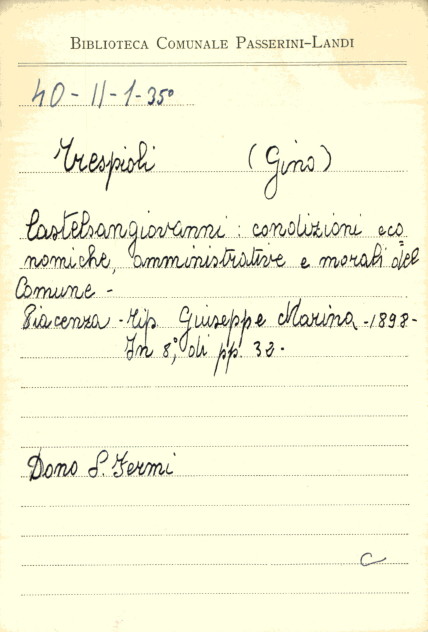 BIBLIOTECA COMUNALE PASSERINI-LANDI
40-II-1-35º
Trespioli (Gino)
Castelsangiovanni : condizioni eco=
nomiche, amministrative e morali del
Comune -
Piacenza - Tip. Giuseppe Marina - 1898 -
In 8º, di pp. 32.
Dono S. Fermi
C